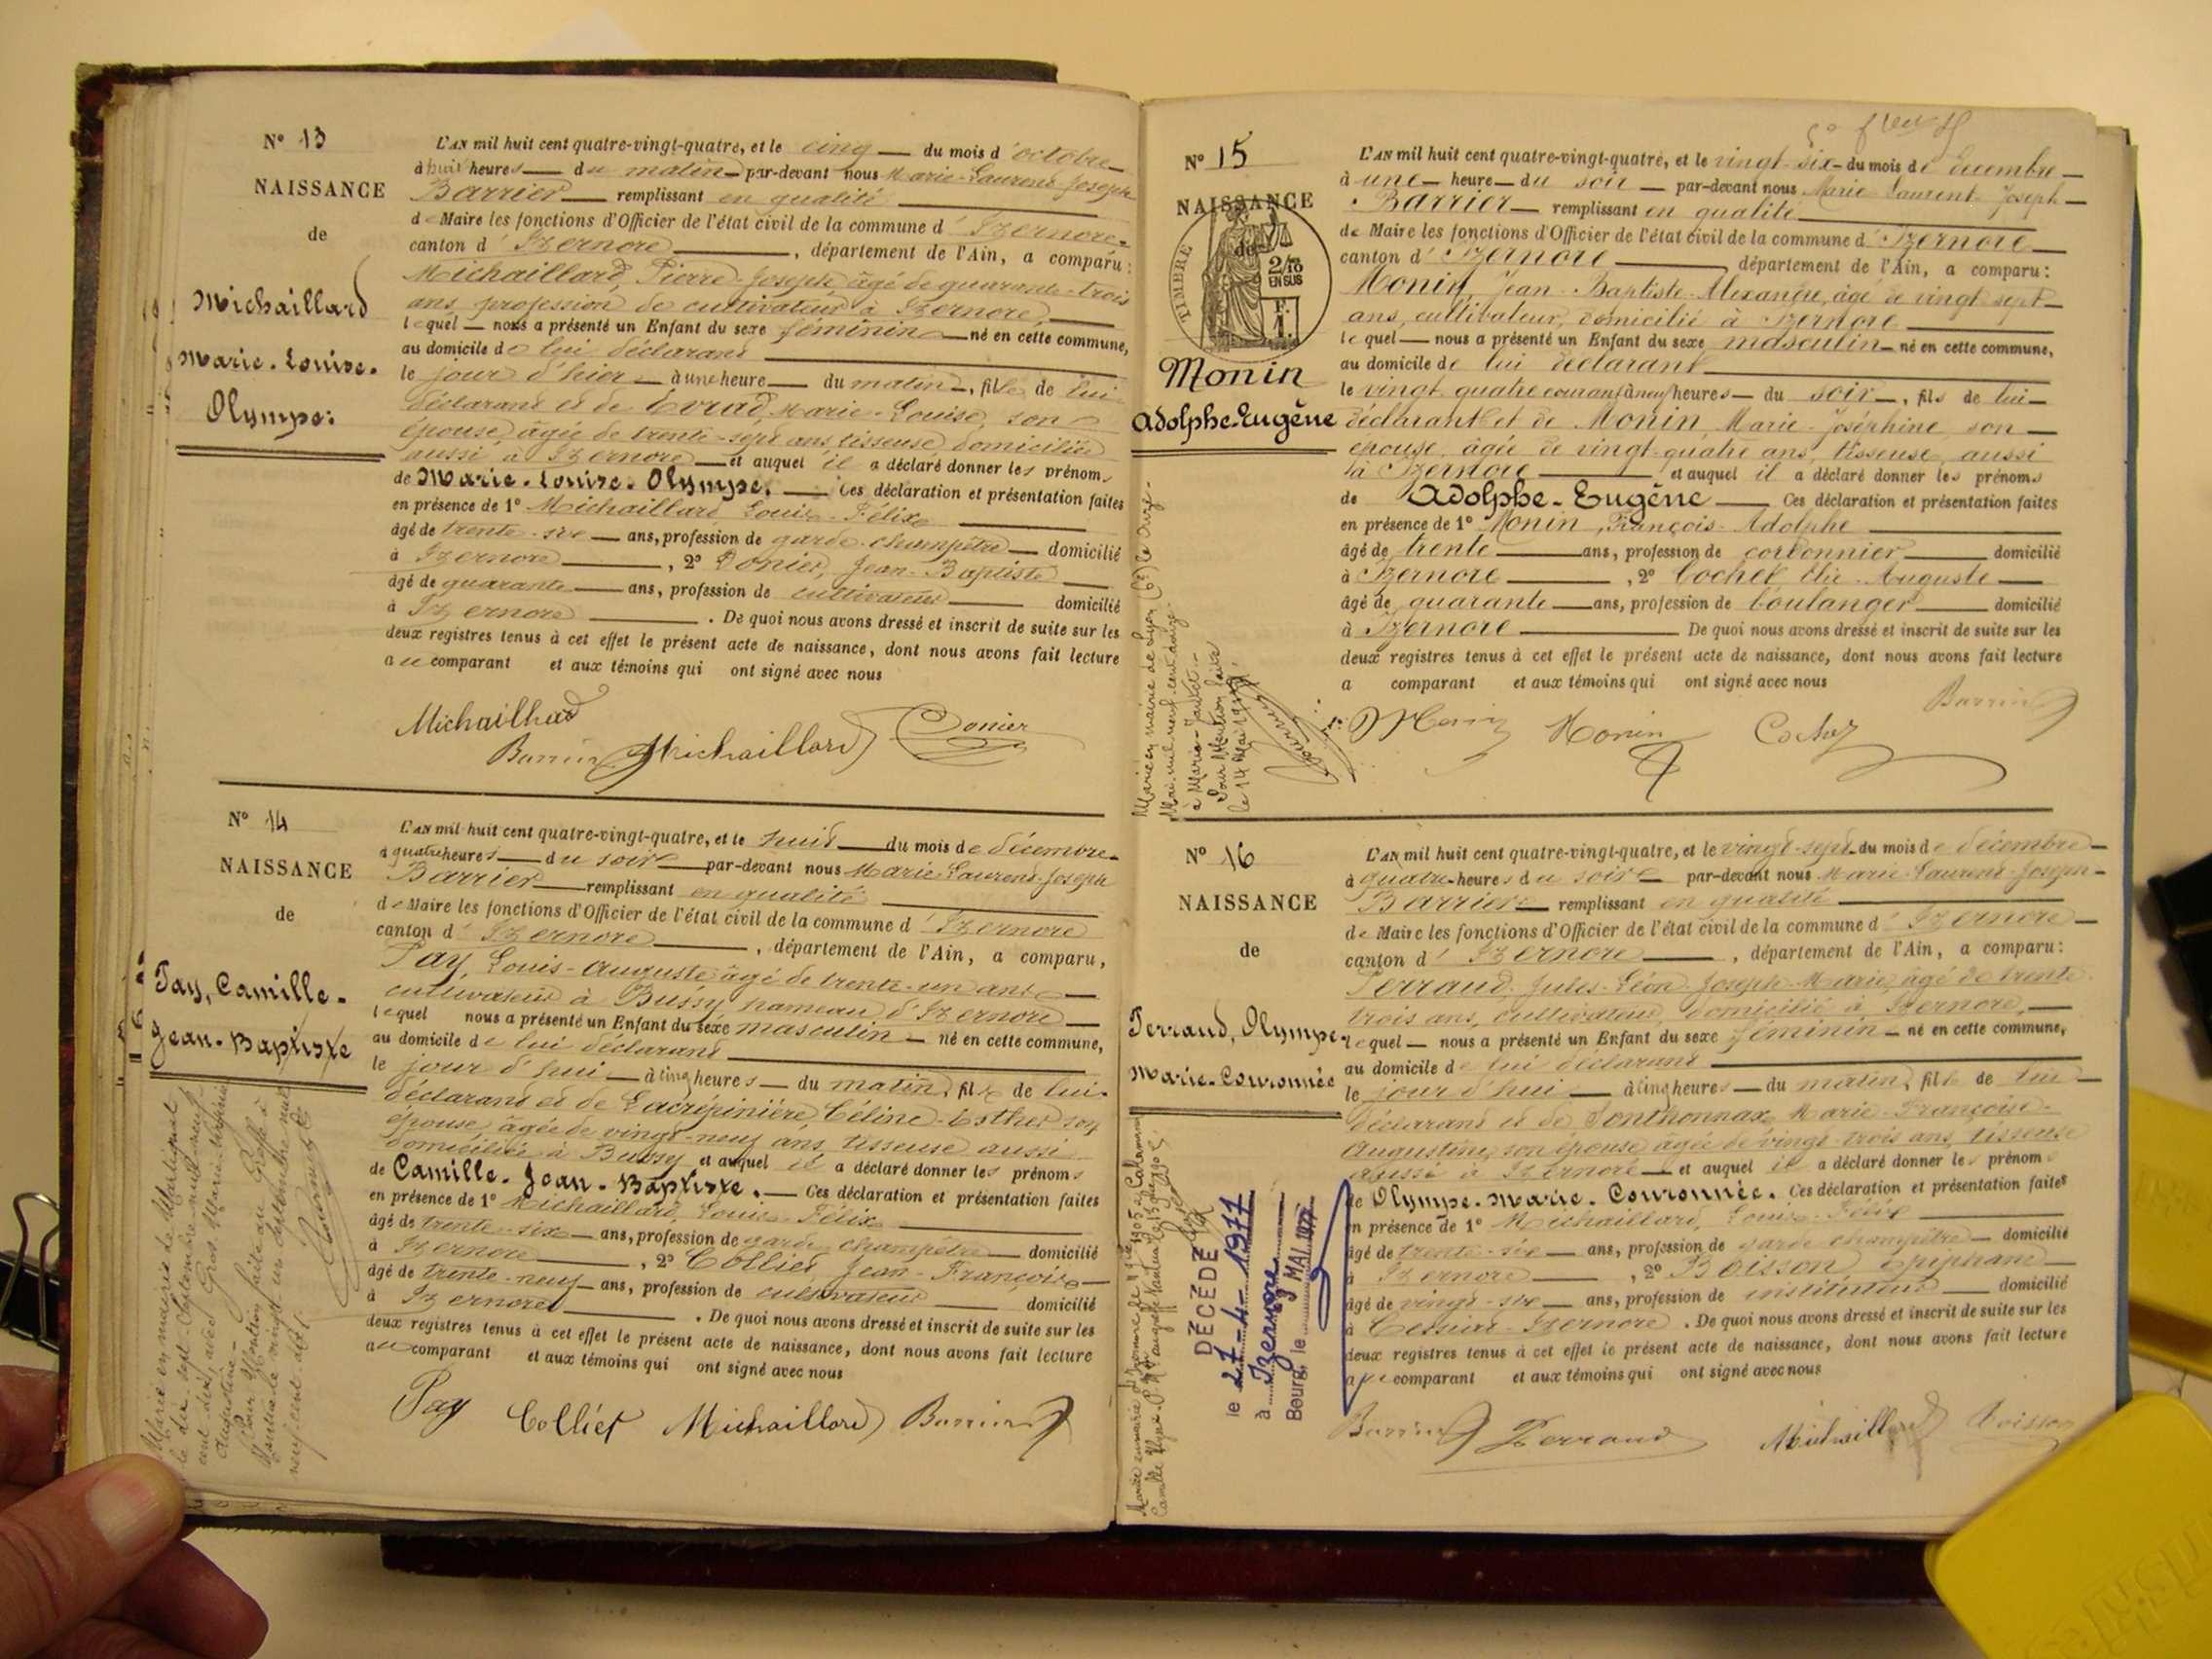 N° 13
NAISSANCE
de
Michaillard
Marie-Louise-
Olympe:
L'AN mil huit cent quatre-vingt-quatre, et le cinq du mois d'octobre
à huit heures du matin par-devant nous Marie-Laurent Joseph
Barrier remplissant en qualité
de Maire les fonctions d'Officier de l'état civil de la commune d'Izernore
canton d'Izernore, département de l'Ain, a comparu:
Michaillard, Pierre-Joseph, âgé de quarante-trois
ans, profession de cultivateur à Izernore,
lequel nous a présenté un Enfant du sexe féminin né en cette commune,
au domicile de lui déclarant
le jour d'hier à une heure du matin, fille de lui
déclarant et de Evrad, Marie-Louise, son
épouse, âgée de trente-sept ans, tisseuse, domiciliée
aussi à Izernore et auquel il a déclaré donner les prénoms
de Marie-Louise-Olympe. Ces déclaration et présentation faites
en présence de 1° Michaillard Louis-Félix
âgé de trente-six ans, profession de garde-champêtre domicilié
à Izernore, 2° Donier, Jean-Baptiste
âgé de quarante ans, profession de cultivateur domicilié
à Izernore. De quoi nous avons dressé et inscrit de suite sur les
deux registres tenus à cet effet le présent acte de naissance, dont nous avons fait lecture
au comparant et aux témoins qui ont signé avec nous
Michaillard
Donier
Barrier Michaillard
N° 14
NAISSANCE
de
Pay, Camille-
Jean-Baptiste
L'AN mil huit cent quatre-vingt-quatre, et le huit du mois de décembre
à quatre heures du soir par-devant nous Marie-Laurent-Joseph
Barrier remplissant en qualité
de Maire les fonctions d'Officier de l'état civil de la commune d'Izernore
canton d'Izernore, département de l'Ain, a comparu,
Pay, Louis-Auguste âgé de trente-un ans
cultivateur à Bussy hameau d'Izernore
lequel nous a présenté un Enfant du sexe masculin né en cette commune,
au domicile de lui déclarant
le jour d'hui à cinq heures du matin, fils de lui
déclarant et de Lacrépinière, Céline-Esther son
épouse, âgée de vingt-neuf ans, tisseuse aussi
domiciliée à Bussy et auquel il a déclaré donner les prénoms
de Camille-Jean-Baptiste. Ces déclaration et présentation faites
en présence de 1° Michaillard, Louis-Félix
âgé de trente-six ans, profession de garde-champêtre domicilié
à Izernore, 2° Colliet Jean-François
âgé de trente-neuf ans, profession de cultivateur domicilié
à Izernore. De quoi nous avons dressé et inscrit de suite sur les
deux registres tenus à cet effet le présent acte de naissance, dont nous avons fait lecture
au comparant et aux témoins qui ont signé avec nous
Pay Colliet Michaillard Barrier
Marié en mairie de Martignat
le dix-sept Septembre mil neuf
cent dix, avec Gros, Marie Joséphine
Augustine -
Pour Mention faite au Greffe à
Nantua le vingt-un Septembre mil
neuf cent dix.
N° 15
NAISSANCE
de
TIMBRE
2/10
EN SUS
F.
1.
Monin
Adolphe-Eugène
L'AN mil huit cent quatre-vingt-quatre, et le vingt-six du mois de décembre
à une heure du soir par-devant nous Marie Laurent Joseph
Barrier remplissant en qualité
de Maire les fonctions d'Officier de l'état civil de la commune d'Izernore
canton d'Izernore département de l'Ain, a comparu:
Monin Jean-Baptiste-Alexandre, âgé de vingt sept
ans, cultivateur, domicilié à Izernore
lequel nous a présenté un Enfant du sexe masculin né en cette commune,
au domicile de lui déclarant
le vingt quatre courant à neuf heures du soir, fils de lui
déclarant et de Monin, Marie-Joséphine son
épouse, âgée de vingt-quatre ans, tisseuse, aussi
à Izernore et auquel il a déclaré donner les prénoms
de Adolphe-Eugène Ces déclaration et présentation faites
en présence de 1° Monin, François-Adolphe
âgé de trente ans, profession de cordonnier domicilié
à Izernore, 2° Cochet, Elie-Auguste
âgé de quarante ans, profession de boulanger domicilié
à Izernore De quoi nous avons dressé et inscrit de suite sur les
deux registres tenus à cet effet le présent acte de naissance, dont nous avons fait lecture
a comparant et aux témoins qui ont signé avec nous
Barrier
Monin Monin Cochet
Marié en mairie de Lyon (6e) le onze
Mai mil neuf cent douze
à Marie-
Pour Mention faite
le 14 Mai 1912
N° 16
NAISSANCE
de
Perraud, Olympe-
Marie-Couronnée
L'AN mil huit cent quatre-vingt-quatre, et le vingt-sept du mois de décembre
à quatre heures du soir par-devant nous Marie-Laurent-Joseph
Barrier remplissant en qualité
de Maire les fonctions d'Officier de l'état civil de la commune d'Izernore
canton d'Izernore, département de l'Ain, a comparu:
Perraud, Jules-Léon-Joseph-Marie, âgé de trente-
trois ans, cultivateur, domicilié à Izernore,
lequel nous a présenté un Enfant du sexe féminin né en cette commune,
au domicile de lui déclarant
le jour d'hui à cinq heures du matin, fille de lui
déclarant et de Ponthonnax Marie-Françoise-
Augustine, son épouse âgée de vingt-trois ans, tisseuse
aussi à Izernore et auquel il a déclaré donner les prénoms
de Olympe-Marie-Couronnée. Ces déclaration et présentation faites
en présence de 1° Michaillard, Louis-Félix
âgé de trente-six ans, profession de garde champêtre domicilié
à Izernore, 2° Boisson Epiphane
âgé de vingt-six ans, profession de instituteur domicilié
à Cessiat-Izernore. De quoi nous avons dressé et inscrit de suite sur les
deux registres tenus à cet effet le présent acte de naissance, dont nous avons fait lecture
au comparant et aux témoins qui ont signé avec nous
Barrier Perraud Michaillard Boisson
DÉCÉDÉ
le 27-4-1977
à Izernore
Bourg, le MAI 1977